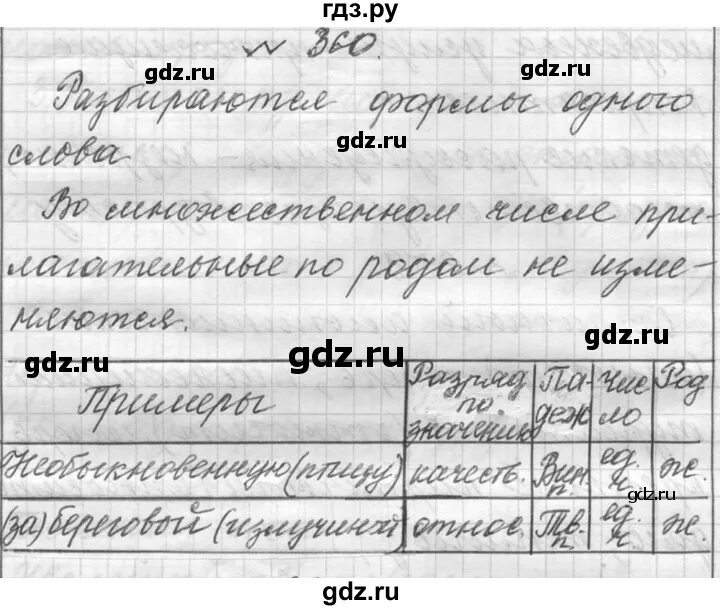 гдз.ру
№ 360.
gdz.ru gdz.ru
Разбираются формы одного
gdz.ru
слова
gdz.ru
Во множественном числе при-
лагательные по родам не изме-
няются.
gdz.ru
gdz.ru gdz.ru
Примеры Разряд по. значению Па-деж Чис ло Род
Необыкновенную (птицу) качеств. Вин. п. ед. ч. ж.
gdz.ru
(за) береговой (излучиной) относ. Тв. п. ед. ч. ж.
gdz.ru
gdz.ru